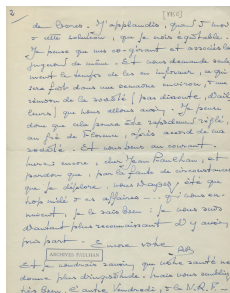 2
[1950]
de Coons. J'applaudis, quant à moi
à cette solution, que je crois équitable.
Je pense que mes co-gérant et associés la
jugeront de même. Et vous demande seule
ment le temps de les en informer, ce qui
sera fait dans une semaine environ, à une
réunion de la société (pas discrète, d'ail
leurs) que nous devons avoir. Je pense
donc que cela pourra être rapidement réglé
au gré de Florence, après accord de ma
société. Et vous tiens au courant.
merci encore, cher Jean Paulhan, et
pardon que, par la faute de circonstances
que je déplore, vous ayez été que
trop mêlé à ces affaires... qui vous en-
nuient, je le sais bien : je vous suis
d'autant plus reconnaissant d'y avoir
pris part. E encore votre
ARCHIVES PAULHAN
Et je voudrais savoir que votre santé ne
donne plus d'inquiétude, mais vous sembliez
très bien, l'autre vendredi, à la N.R.F.